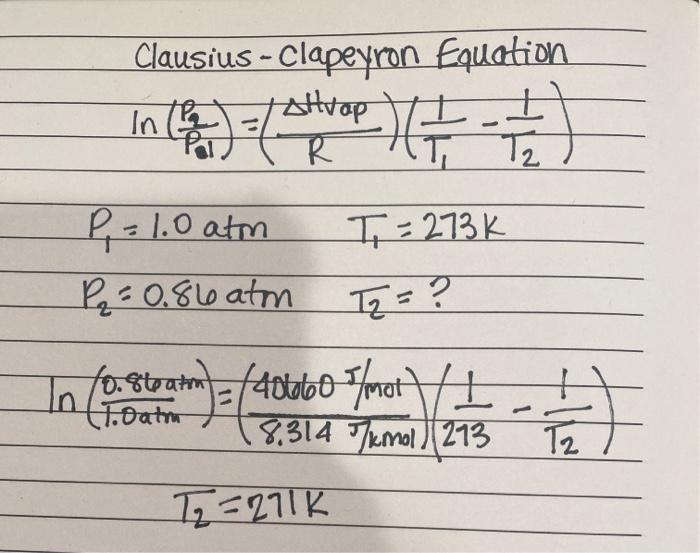 Clausius - Clapeyron Equation
ln (P2/P1) = (ΔHvap/R)(1/T1 - 1/T2)
P1 = 1.0 atm T1 = 273 K
P2 = 0.86 atm T2 = ?
ln (0.86 atm/1.0 atm) = (40660 J/mol / 8.314 J/kmol)(1/273 - 1/T2)
T2 = 271 K